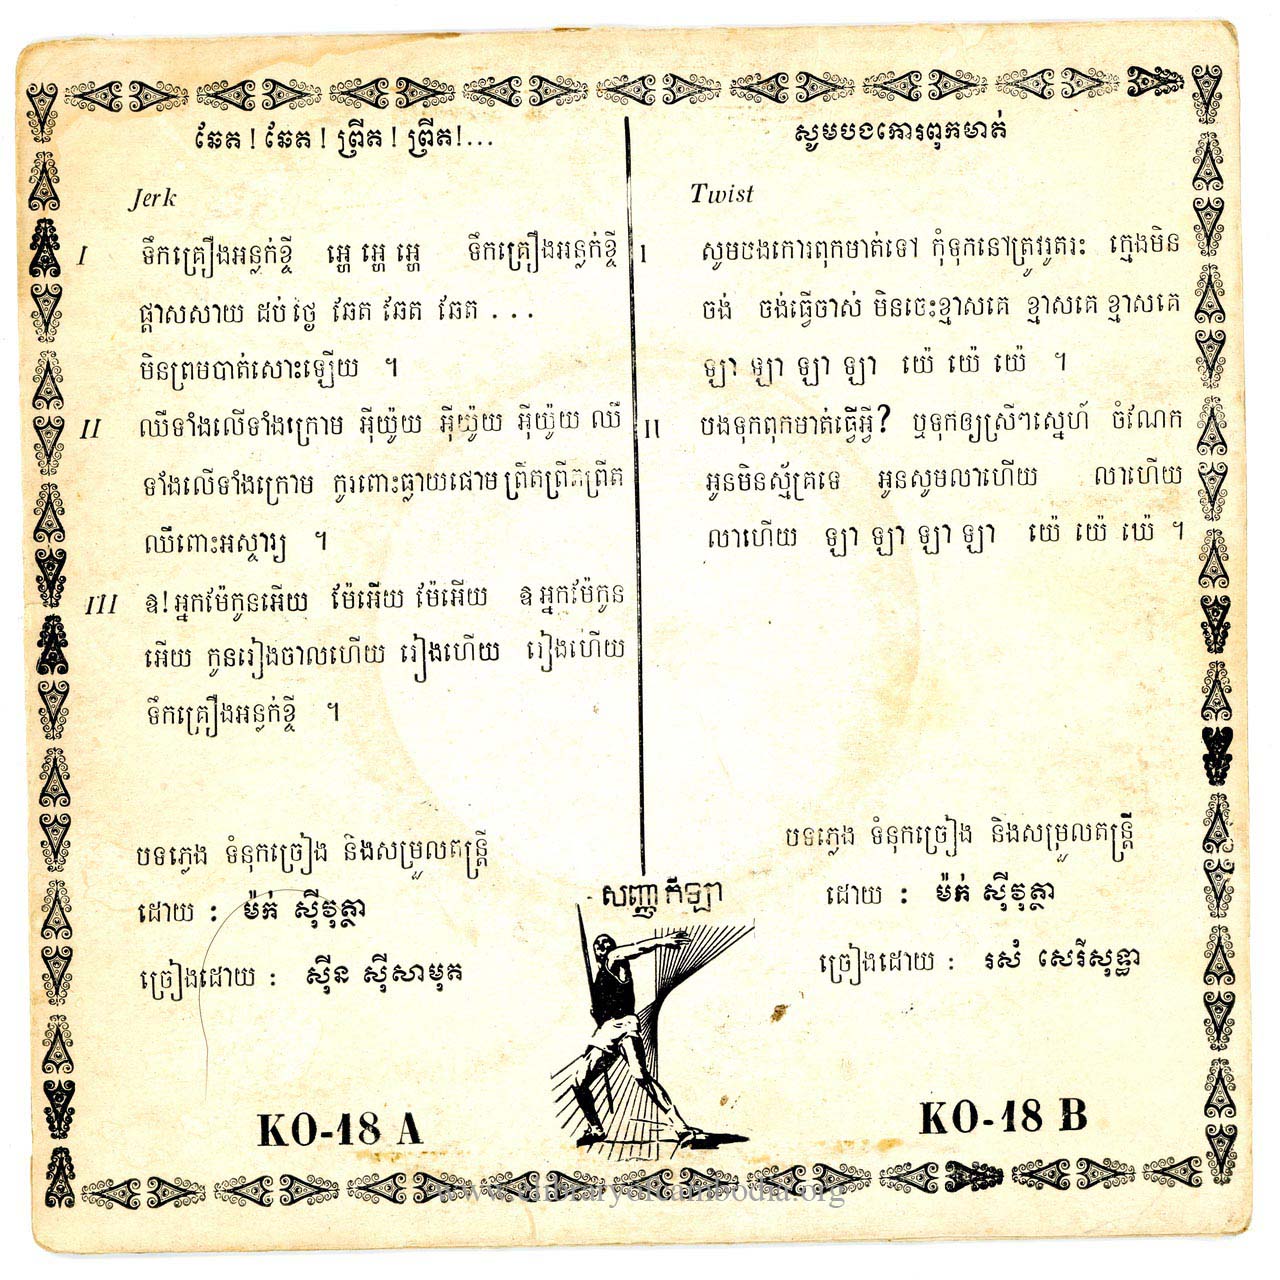 ឆែត ! ឆែត ! ព្រឺត ! ព្រឺត!...
Jerk
I ទឹកគ្រឿងអន្លក់ខ្ចី អ្ហេ អ្ហេ អ្ហេ ទឹកគ្រឿងអន្លក់ខ្ចី
ផ្តាសសាយ ដប់ ថ្ងៃ ឆែត ឆែត ឆែត . . .
មិនព្រមបាត់សោះឡើយ ។
II ឈឺទាំងលើទាំងក្រោម អ៊ីយ៉ូយ អ៊ីយ៉ូយ អ៊ីយ៉ូយ ឈឺ
ទាំងលើទាំងក្រោម កូរពោះធ្លាយផោម ព្រឺតព្រឺតព្រឺត
ឈឺពោះអស្ចារ្យ ។
III ឧ! អ្នកម៉ែកូនអើយ ម៉ែអើយ ម៉ែអើយ ឧ អ្នកម៉ែកូន
អើយ កូនរៀងចាលហើយ រៀងហើយ រៀងហើយ
ទឹកគ្រឿងអន្លក់ខ្ចី ។
បទភ្លេង ទំនុកច្រៀង និងសម្រួលតន្ត្រី
ដោយ : ម៉ក់ ស៊ីវុត្ថា
ច្រៀងដោយ : ស៊ីន ស៊ីសាមុត
KO-18 A
សូមបងកោរពុកមាត់
Twist
I សូមបងកោរពុកមាត់ទៅ កុំទុកនៅត្រូវរូតរះ ក្មេងមិន
ចង់ ចង់ធ្វើចាស់ មិនចេះខ្មាសគេ ខ្មាសគេ ខ្មាសគេ
ឡា ឡា ឡា ឡា យ៉េ យ៉េ យ៉េ ។
II បងទុកពុកមាត់ធ្វើអ្វី? ឬទុកឲ្យស្រីៗស្នេហ៍ ចំណែក
អូនមិនស្ម័គ្រទេ អូនសូមលាហើយ លាហើយ
លាហើយ ឡា ឡា ឡា ឡា យ៉េ យ៉េ យ៉េ ។
បទភ្លេង ទំនុកច្រៀង និងសម្រួលតន្ត្រី
ដោយ : ម៉ក់ ស៊ីវុត្ថា
ច្រៀងដោយ : រស់ សេរីសុទ្ធា
KO-18 B
សញ្ញា កីឡា